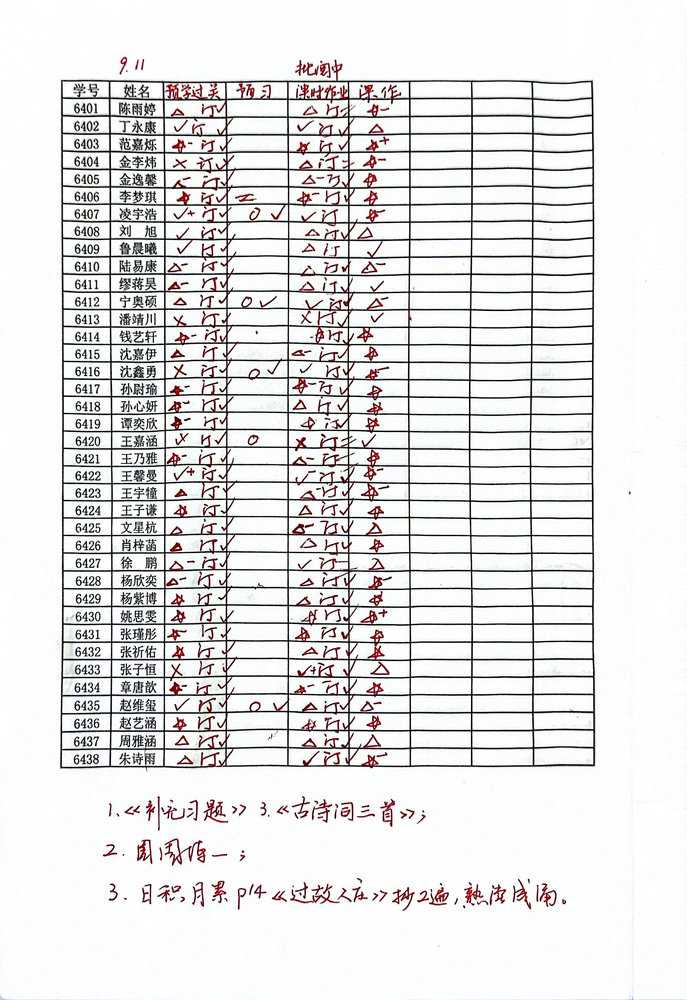 9.11 批阅中
学号 姓名 预学过关 预习 课时作业 课作
6401 陈雨婷 △ 订✓ △ 订= ☆-
6402 丁永康 ✓ 订✓ ✓ 订✓ △
6403 范嘉烁 ☆- 订✓ ☆ 订✓ ☆+
6404 金李炜 × 订✓ △ 订= ☆-
6405 金逸馨 △- 订✓ △- 订✓ ☆
6406 李梦琪 ☆ 订✓ = ☆- 订✓ ☆
6407 凌宇浩 ✓+ 订✓ 0 ✓ ✓ 订 ☆-
6408 刘旭 ✓ 订✓ △ 订✓ △
6409 鲁晨曦 ✓ 订✓ △ 订 ✓
6410 陆易康 △- 订✓ △ 订✓ △-
6411 缪蒋昊 △- 订✓ △ 订✓ ✓
6412 宁奥硕 △ 订✓ 0 ✓ ✓ 订✓ △-
6413 潘靖川 × 订✓ × 订✓ ✓
6414 钱艺轩 ☆- 订✓ ☆ 订✓ ☆
6415 沈嘉伊 △ 订✓ △- 订✓ ☆
6416 沈鑫勇 × 订✓ 0 ✓ ✓ 订✓ ☆-
6417 孙尉瑜 ☆- 订✓ ☆- 订✓ ☆
6418 孙心妍 ☆- 订✓ △ 订✓ ☆
6419 谭奕欣 ☆- 订✓ ☆ 订✓ ☆
6420 王嘉涵 × 订✓ 0 × 订= ✓
6421 王乃雅 ☆- 订✓ △- 订= ☆
6422 王馨曼 ✓+ 订✓ ✓ 订✓ ☆-
6423 王宇犝 △ 订✓ △ 订✓ ☆-
6424 王子谦 ☆ 订✓ △ 订✓ ☆
6425 文星杭 △ 订✓ △- 订✓ △
6426 肖梓菡 △ 订✓ △ 订✓ ☆
6427 徐鹏 △- 订✓ ✓ 订- △
6428 杨欣奕 △- 订✓ △ 订✓ ☆-
6429 杨紫博 ☆ 订✓ △ 订✓ ☆
6430 姚思雯 ☆ 订✓ ☆ 订✓ ☆+
6431 张瑾彤 ☆- 订✓ ☆ 订✓ ☆
6432 张祈佑 ☆ 订✓ △ 订✓ ☆
6433 张子恒 × 订✓ ✓+ 订✓ △
6434 章唐歆 ☆- 订✓ ☆- 订✓ ☆
6435 赵维玺 ✓ 订✓ 0 ✓ △ 订✓ △-
6436 赵艺涵 ☆ 订✓ ☆ 订✓ ☆
6437 周雅涵 △ 订✓ △ 订✓ △
6438 朱诗雨 △ 订✓ ✓ 订✓ ☆-
1.《补充习题》3.《古诗词三首》;
2. 周周练一;
3. 日积月累 p14《过故人庄》抄2遍,熟读成诵。